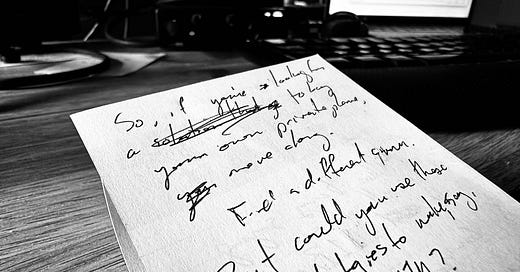 So, if you're looking for
a to buy
your own private plane,
move along.
Find a different guru.
But could you use these
to